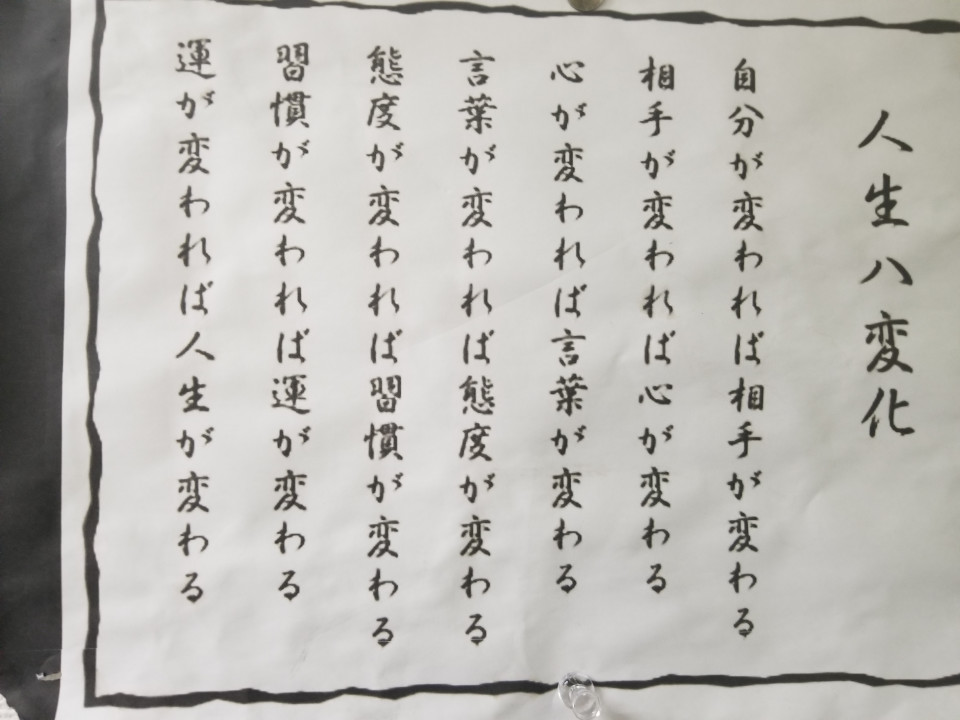 人生八変化
自分が変われば相手が変わる
相手が変われば心が変わる
心が変われば言葉が変わる
言葉が変われば態度が変わる
態度が変われば習慣が変わる
習慣が変われば運が変わる
運が変われば人生が変わる